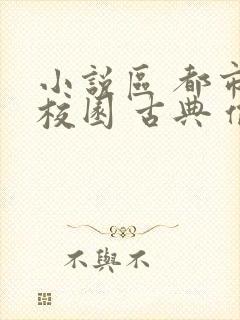 小說區 都市
校園 古典
不與不